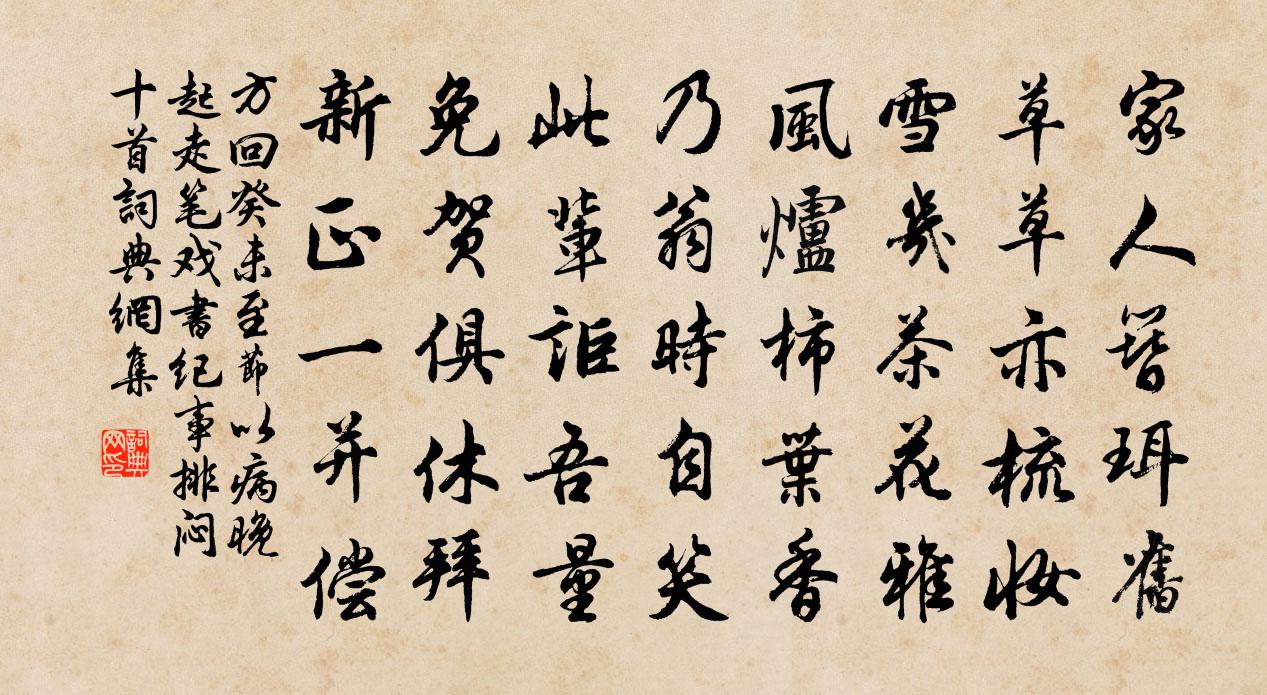 家人簪珥舊
草草亦梳妝
雪幾茶花雅
風爐柿葉香
乃翁時自笑
此輩詎吾量
免贺俱休拜
新正一并偿
方回癸未至節以病晚
起走笔戏書纪事排闷
十首詞典網集
詞典
网印